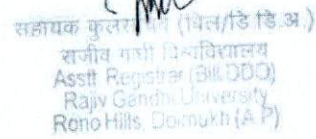 सहायक कुलसचिव (बिल/डि.डि.अ.)
राजीव गांधी विश्वविद्यालय
Asstt Registrar (Bill DDO)
Rajiv Gandhi University
Rono Hills, Doimukh (A P)